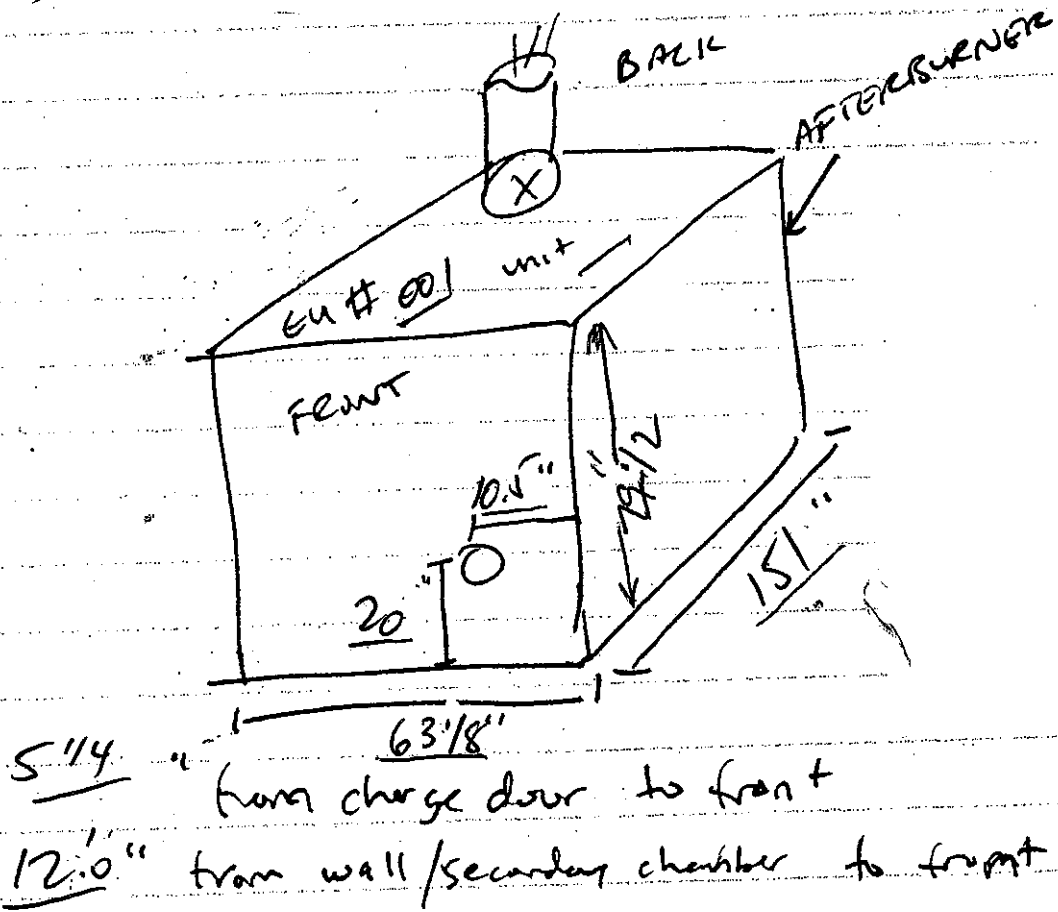 BACK
AFTERBURNER
X
EU # 001 unit
FRONT
10.5"
20"
63 1/8"
151"
5 1/4 "
from charge door to front
12.0" from wall/secondary chamber to front